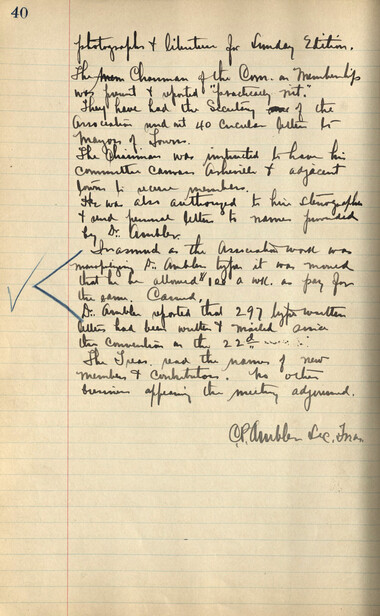 40
photographs & literature for Sunday Edition.
The Chairman of the Com. on Membership
was present & reported "practically nil."
They have had the Secretary of the
Association send out 40 circular letters to
Mayors of Towns.
The Chairman was instructed to have his
committee canvass Asheville & adjacent
towns to secure members.
He was also authorized to hire stenographer
& send personal letter to names furnished
by Dr. Ambler.
Inasmuch as the Association work was
Dr. Ambler's it was moved
that he be allowed $1.00 a wk. as pay for
the same. Carried.
Dr. Ambler reported that 297 type written
letters had been written & mailed since
the convention on the 22d
The Treas. read the names of new
members & contributors. No other
business appearing the meeting adjourned.
C.P. Ambler Sec. Treas.